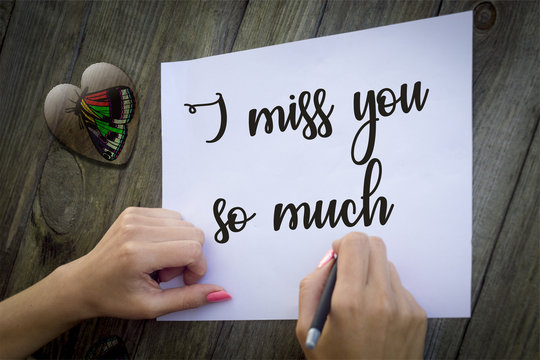 I miss you
so much